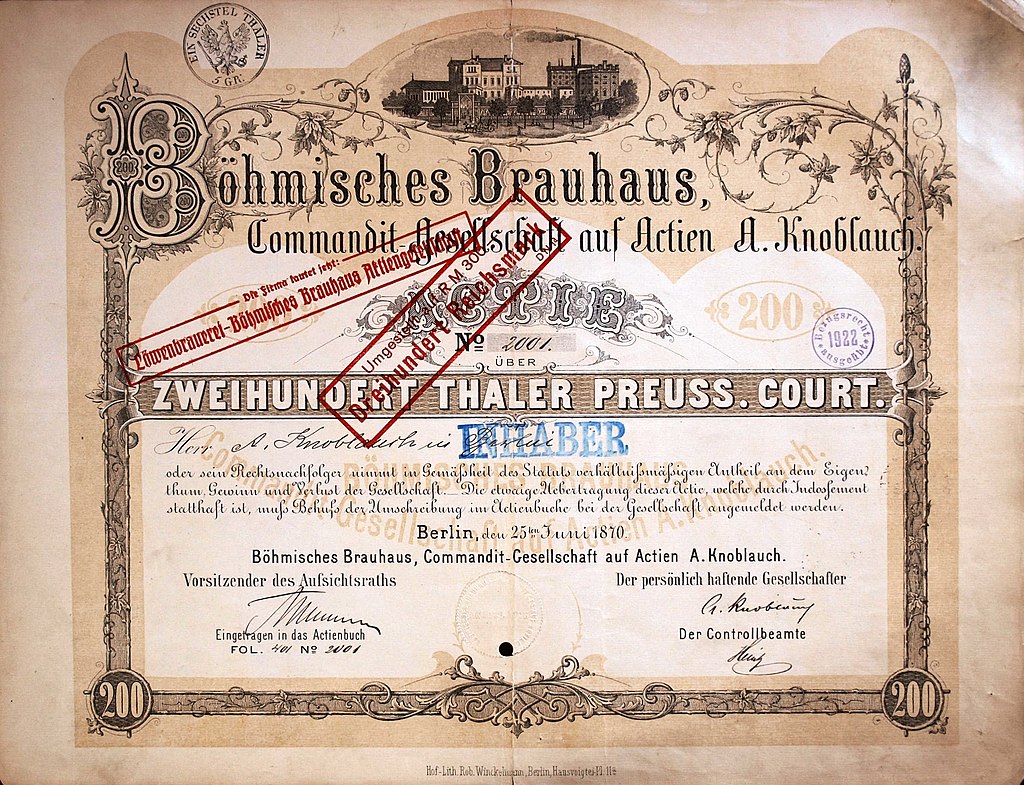 EIN SECHSTEL THALER
5 GR.
200
Böhmisches Brauhaus,
Commandit-Gesellschaft auf Actien A. Knoblauch.
Die Firma lautet jetzt:
Löwenbrauerei-Böhmisches Brauhaus Aktiengesellschaft
Umgestellt auf RM 300
Dreihundert Reichsmark
ACTIE
200
200
Bezugsrecht
1922
ausgeübt
No 2001.
ÜBER
ZWEIHUNDERT THALER PREUSS. COURT.
Herr A. Knoblauch in Berlin
INHABER
oder sein Rechtsnachfolger nimmt in Gemäßheit des Statuts verhältnißmäßigen Antheil an dem Eigen=
thum, Gewinn und Verlust der Gesellschaft. Die etwaige Uebertragung dieser Actie, welche durch Indossement
statthaft ist, muß Behufs der Umschreibung im Actienbuche bei der Gesellschaft angemeldet werden.
BÖHMISCHES BRAUHAUS
Commandit-Gesellschaft auf Actien A. Knoblauch.
Berlin, den 25ten Juni 1870.
Böhmisches Brauhaus, Commandit-Gesellschaft auf Actien A. Knoblauch.
Vorsitzender des Aufsichtsraths
Der persönlich haftende Gesellschafter
A. Knoblauch
Eingetragen in das Actienbuch
FOL. 401 No 2001
Der Controllbeamte
200
200
Hof-Lith. Rob. Winckelmann, Berlin, Hausvoigtei-Pl. 11a